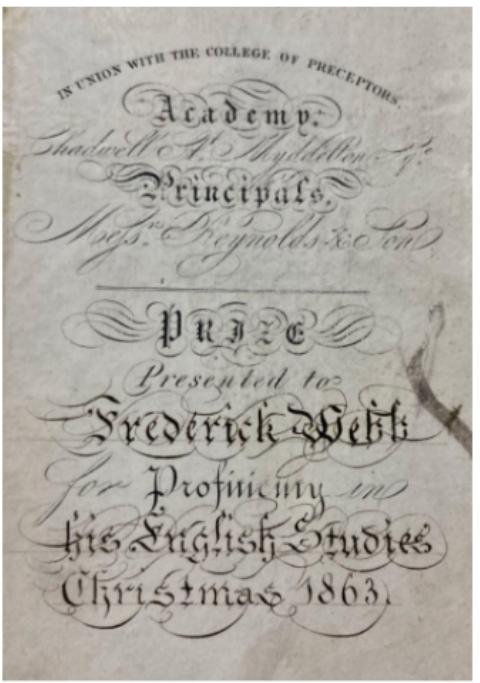 IN UNION WITH THE COLLEGE OF PRECEPTORS.
Academy.
Chadwell St. Myddelton Sqe.
Principals.
Messrs. Reynolds & Son
PRIZE
Presented to
Frederick Webb
for Proficiency in
his English Studies
Christmas 1863.